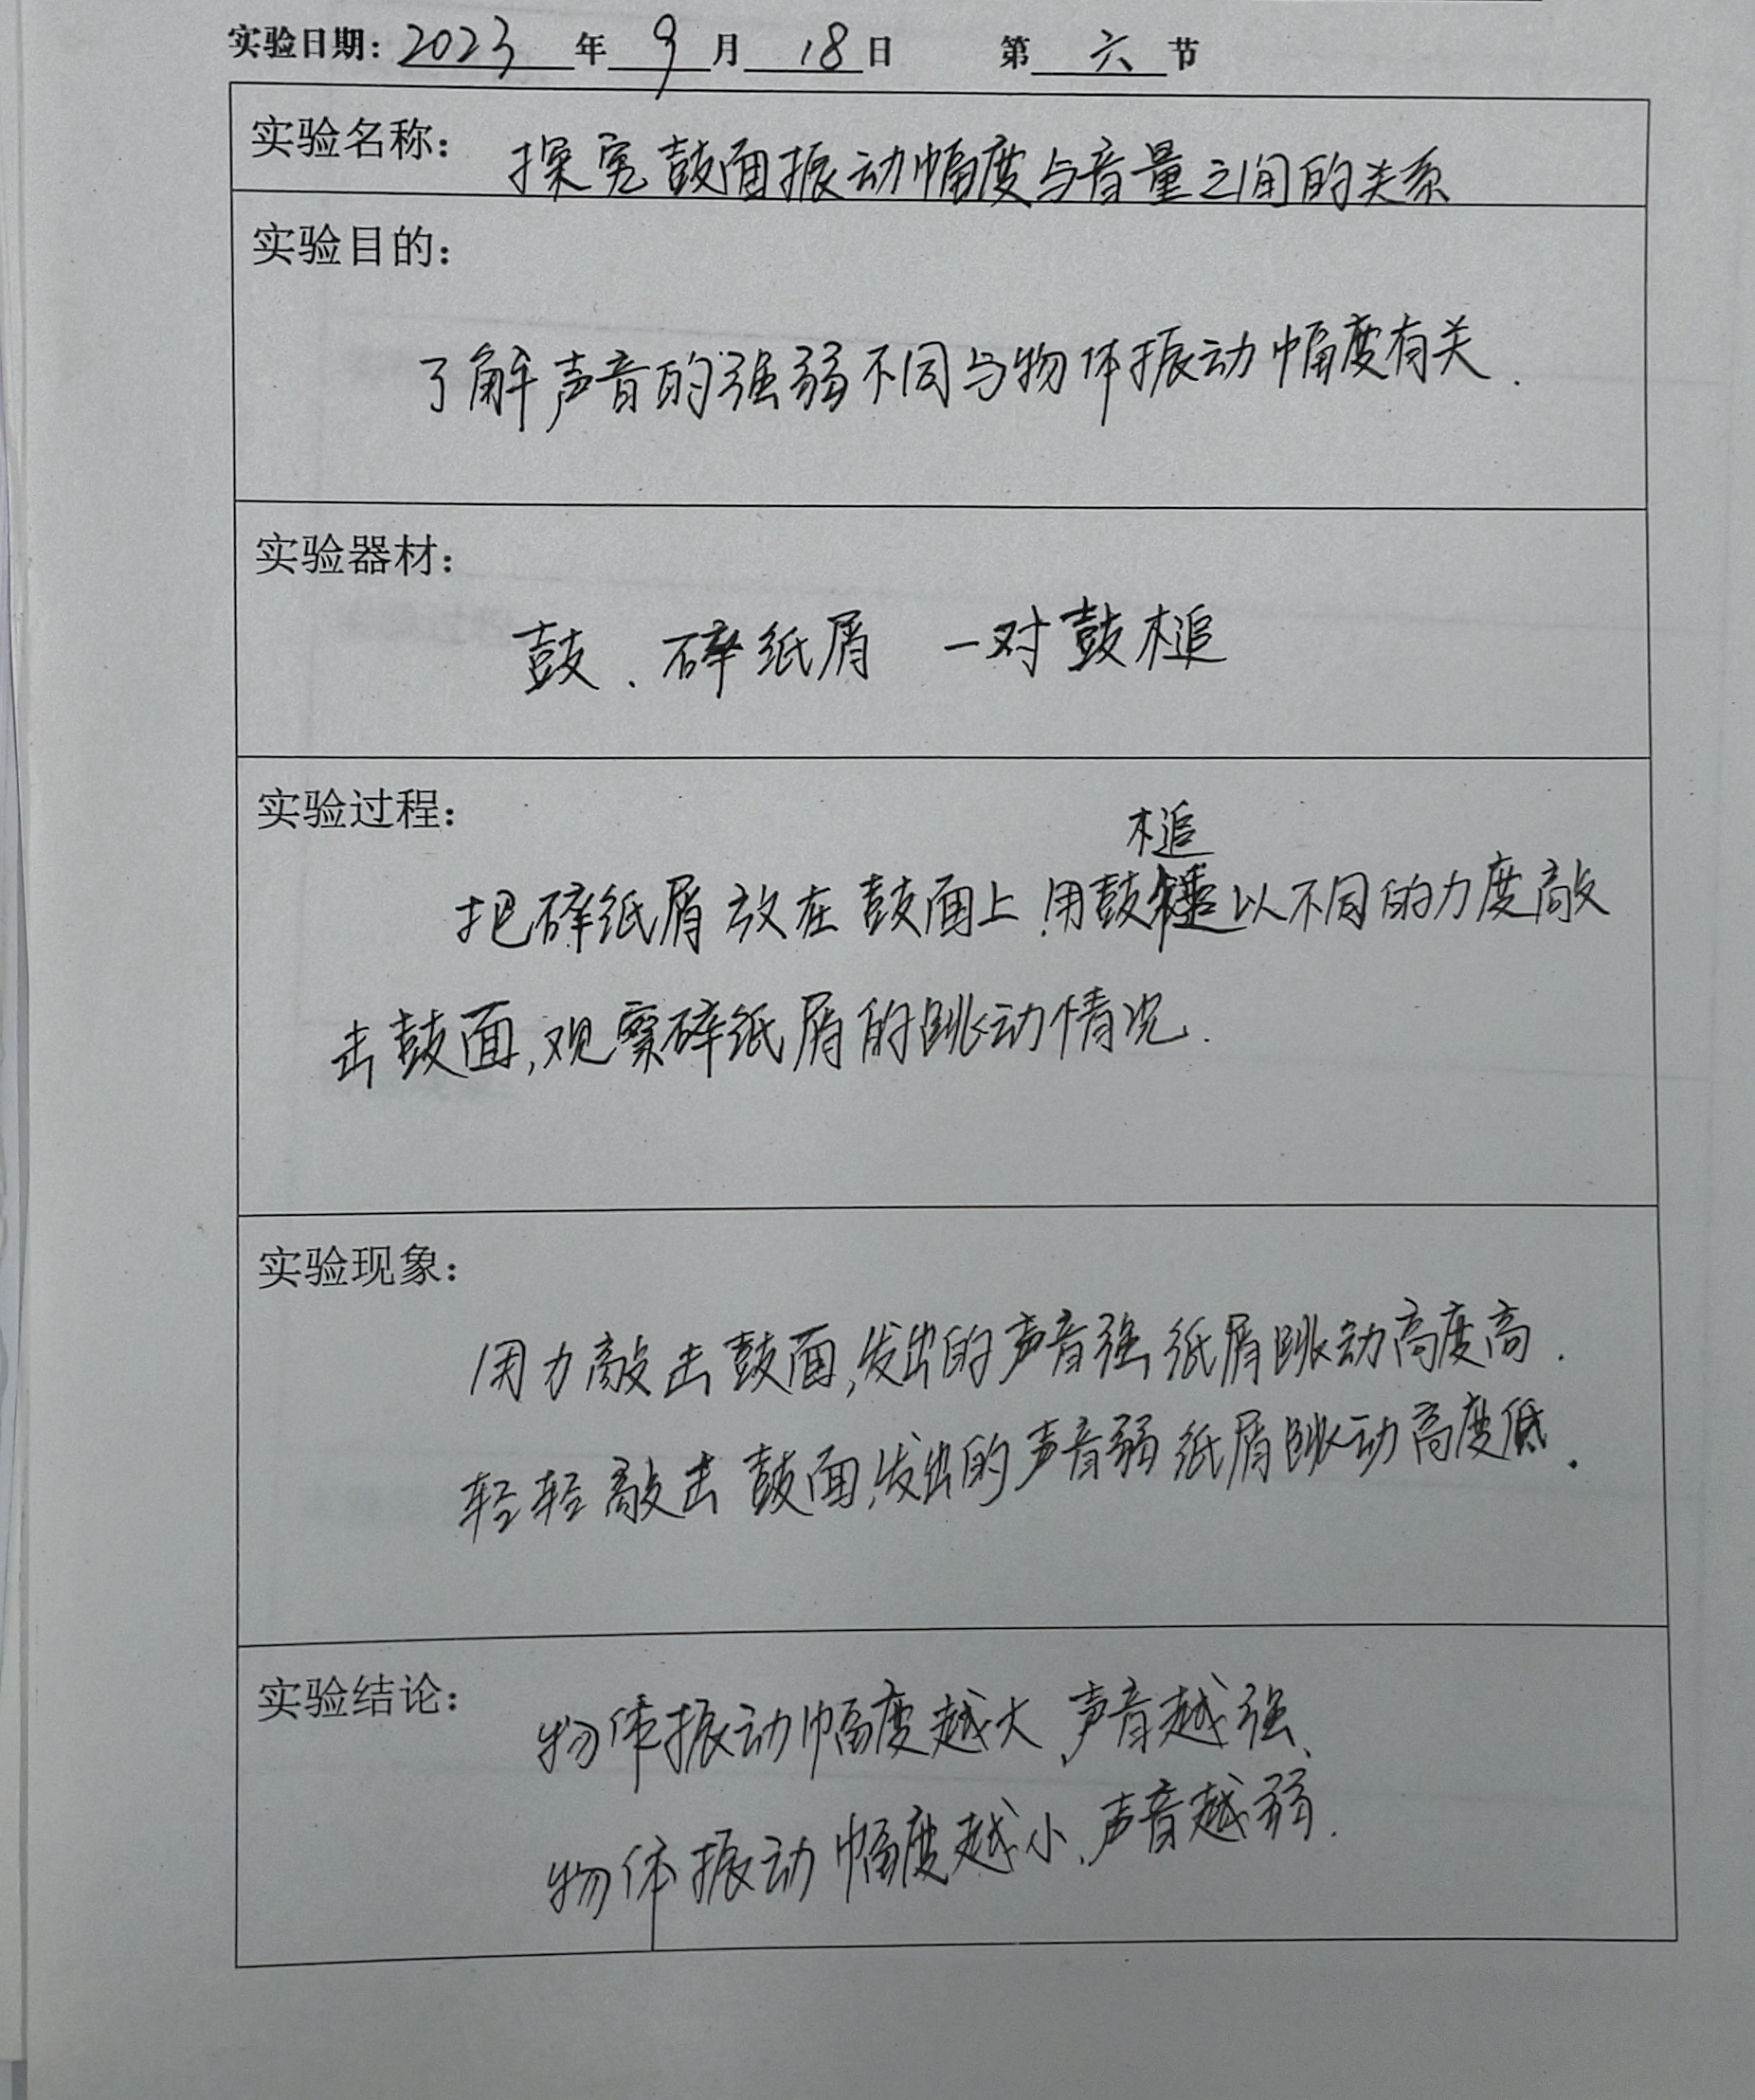 实验日期：2023年9月18日 第六节
实验名称：探究鼓面振动幅度与音量之间的关系
实验目的：
了解声音的强弱不同与物体振动幅度有关.
实验器材：
鼓、碎纸屑 一对鼓槌
实验过程：
槌
把碎纸屑放在鼓面上，用鼓以不同的力度敲
击鼓面，观察碎纸屑的跳动情况.
实验现象：
用力敲击鼓面，发出的声音强 纸屑跳动高度高.
轻轻敲击鼓面，发出的声音弱 纸屑跳动高度低.
实验结论：
物体振动幅度越大，声音越强、
物体振动幅度越小、声音越弱.